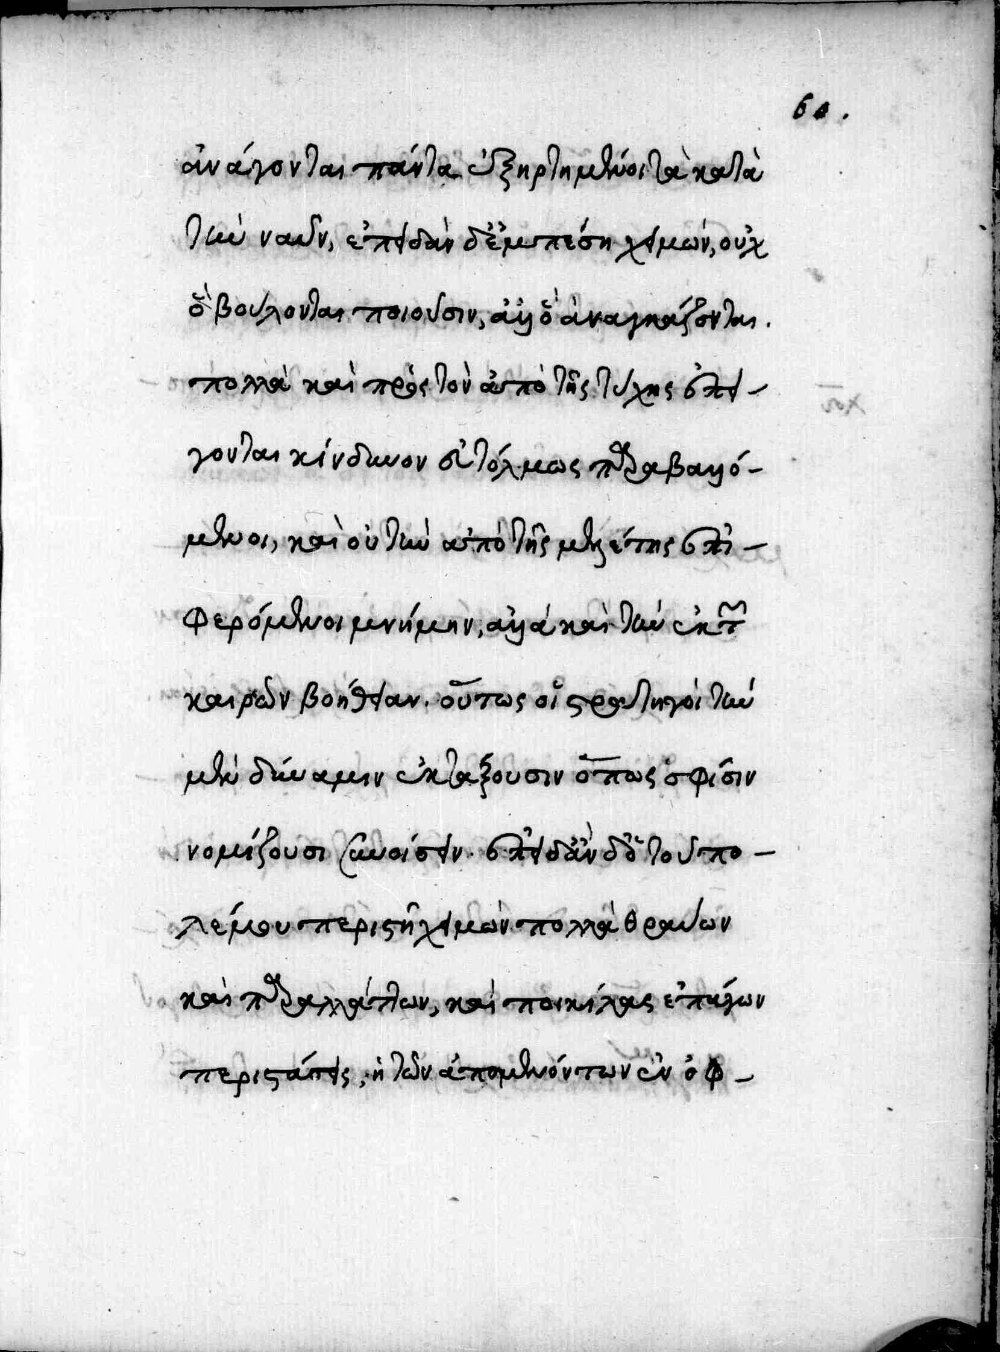 60.
ἀνάγονται πάντα ἐξηρτημένοι τὰ κατὰ
τὴν ναῦν, ἐπειδὰν δ' ἐμπέση χειμών, οὐχ
ὃ βούλονται ποιοῦσιν, ἀλλ' ὃ ἀναγκάζονται.
πολλὰ καὶ πρὸς τὸν ἀπὸ τῆς τύχης ἐπεί-
γοντα κίνδυνον εὐτόλμως παραβαλλό-
μενοι, καὶ οὐ τὴν ἀπὸ τῆς μελέτης ἐπι-
φερόμενοι μνήμην, ἀλλὰ καὶ τὴν ἐκ τῶν
καιρῶν βοήθειαν. οὕτως οἱ στρατηγοὶ τὴν
μὲν δύναμιν ἐκτάξουσιν ὅπως σφίσιν
νομίζουσι συνοίσειν. ἐπειδὰν δὲ ὁ τοῦ πο-
λέμου περιστῆ χειμὼν πολλὰ θραύων
καὶ παραλλάττων, καὶ ποικίλας ἐπάγων
περιστάσεις, ἡ τῶν ἀπομενόντων ἐν ὀφ-